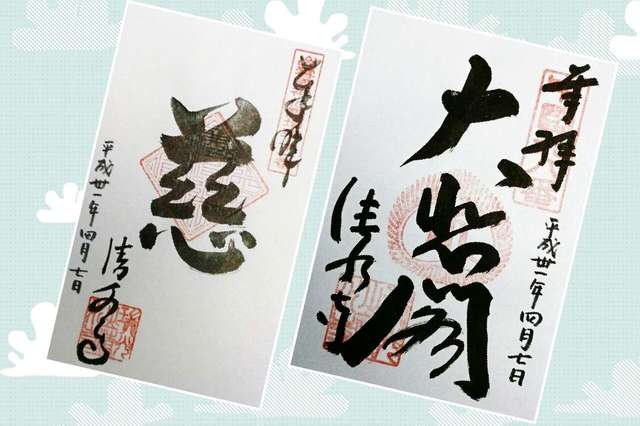 奉拝
慈
平成卅一年四月七日
清水寺
奉拝
平成卅一年四月七日
大悲閣
清水寺